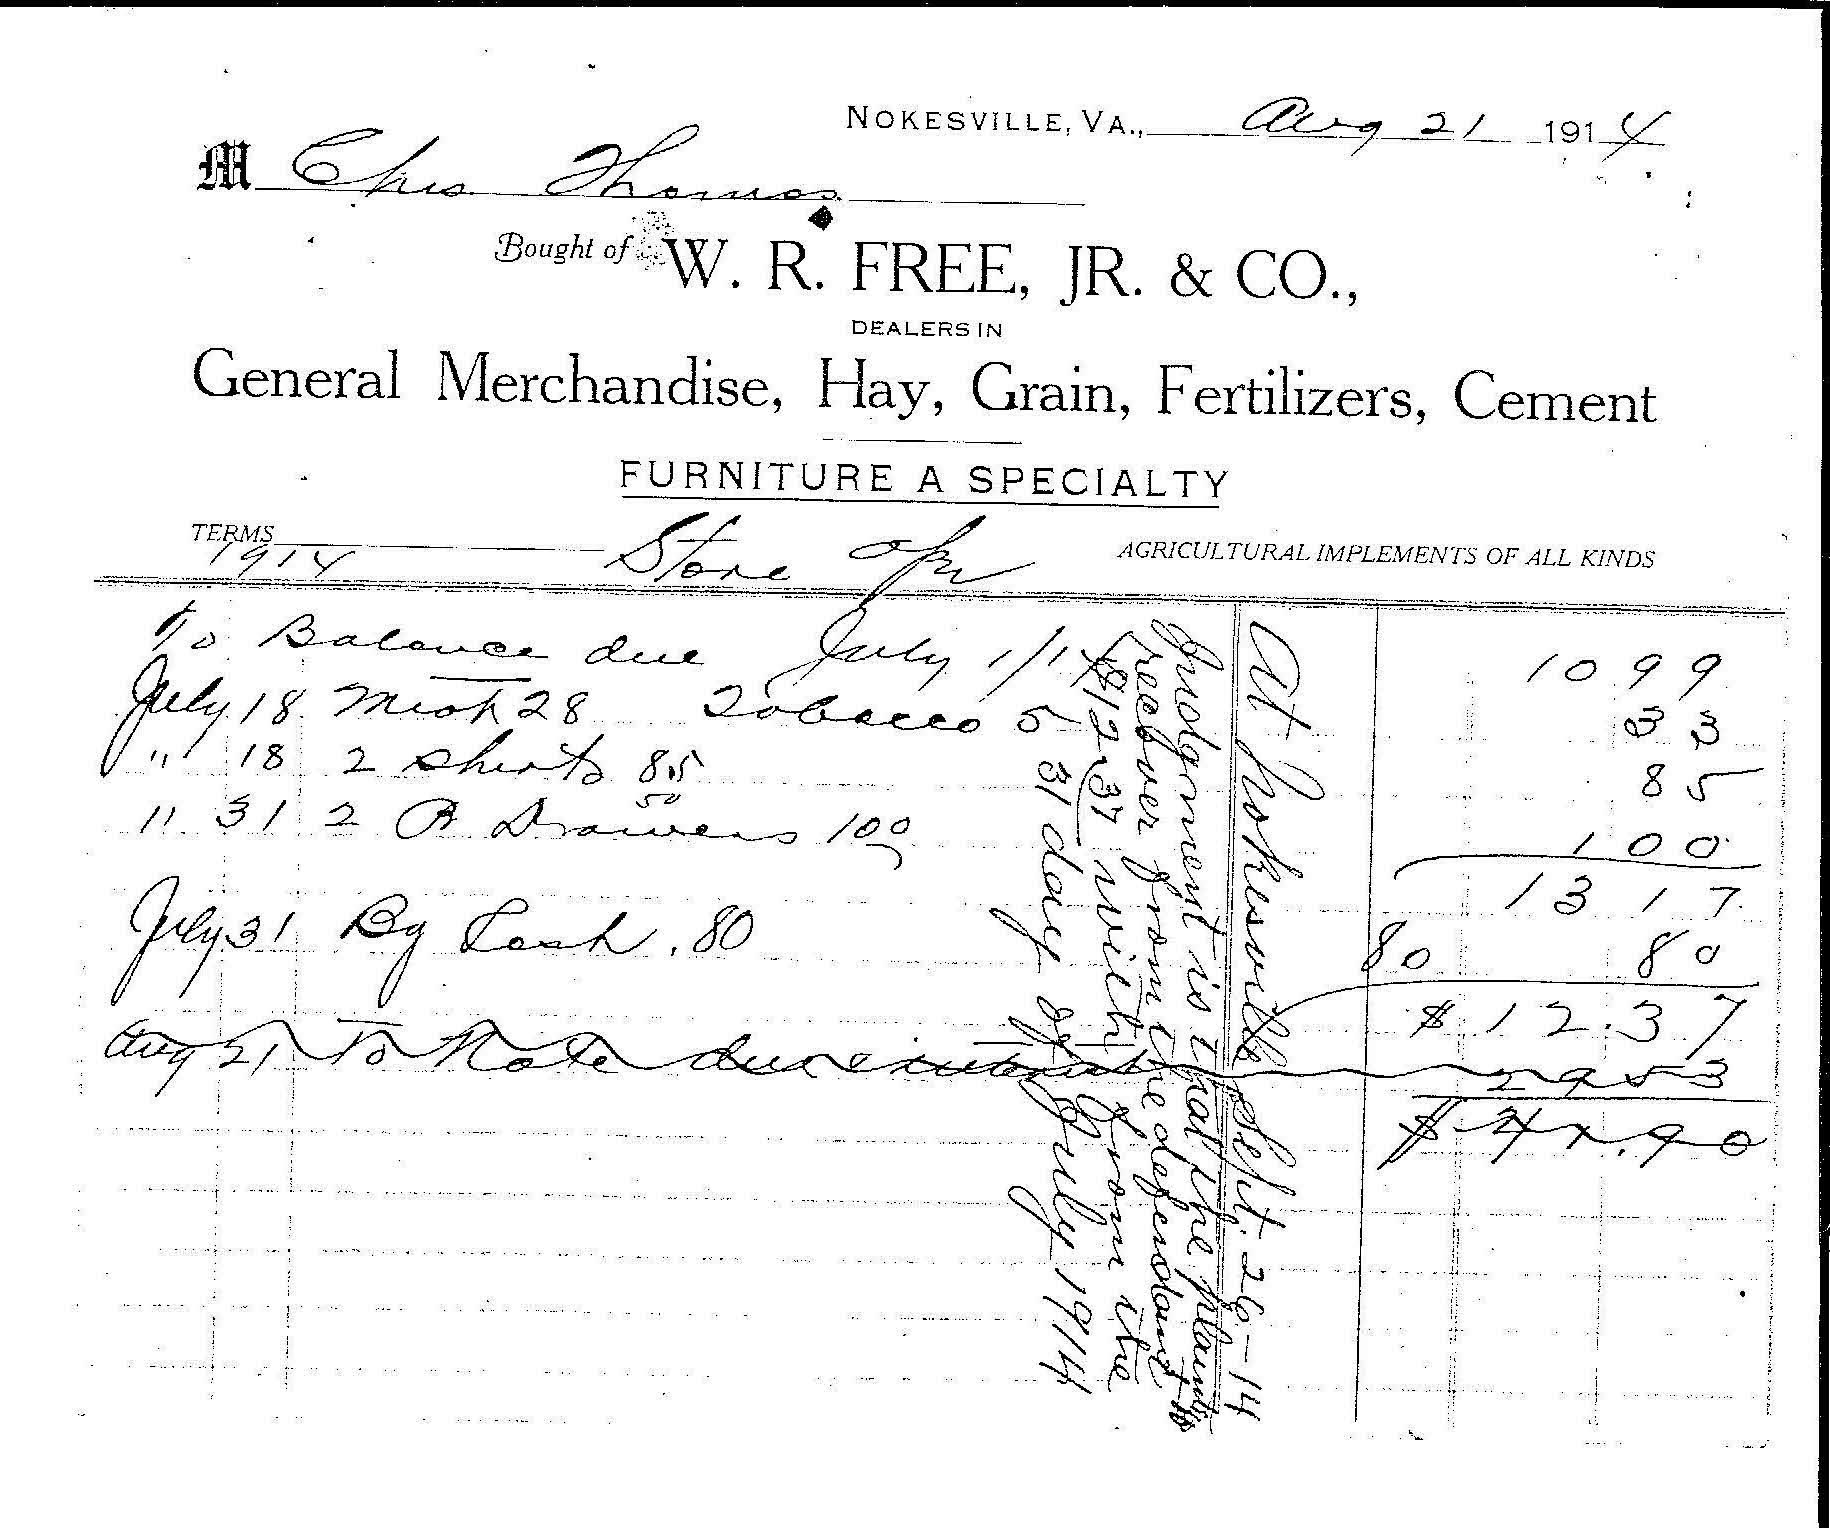 NOKESVILLE, VA., Aug 21 1914
M Chas Thomas
Bought of W. R. FREE, JR. & CO.,
DEALERS IN
General Merchandise, Hay, Grain, Fertilizers, Cement
FURNITURE A SPECIALTY
TERMS Store AGRICULTURAL IMPLEMENTS OF ALL KINDS
1914
To Balance due July 1/14 10 99
July 18 28 Tobacco 5 33
" 18 2 Shirts 85 85
" 31 2 P Drawers 50 100 1 00
13 17
July 31 By Cash .80 80 80
$12.37
Aug 21 To Note due interest 29 53
$ 41.90
At Nokesville Sept. 26-14
Judgment is that the plaintiff
recover from the defendant
$12.37 with from the
31 day of July 1914